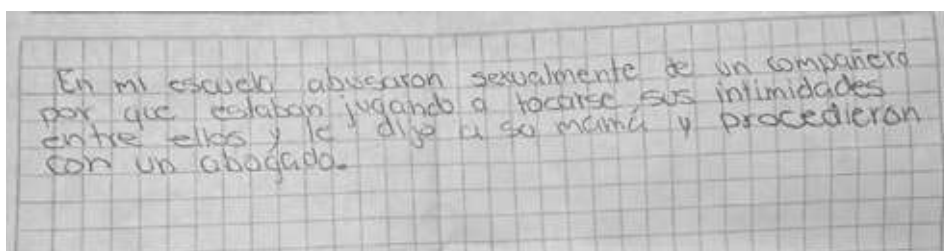 En mi escuela abusaron sexualmente de un compañero
por que estaban jugando a tocarse sus intimidades
entre ellos y le dije a so mamá y procedieron
con un abogado.